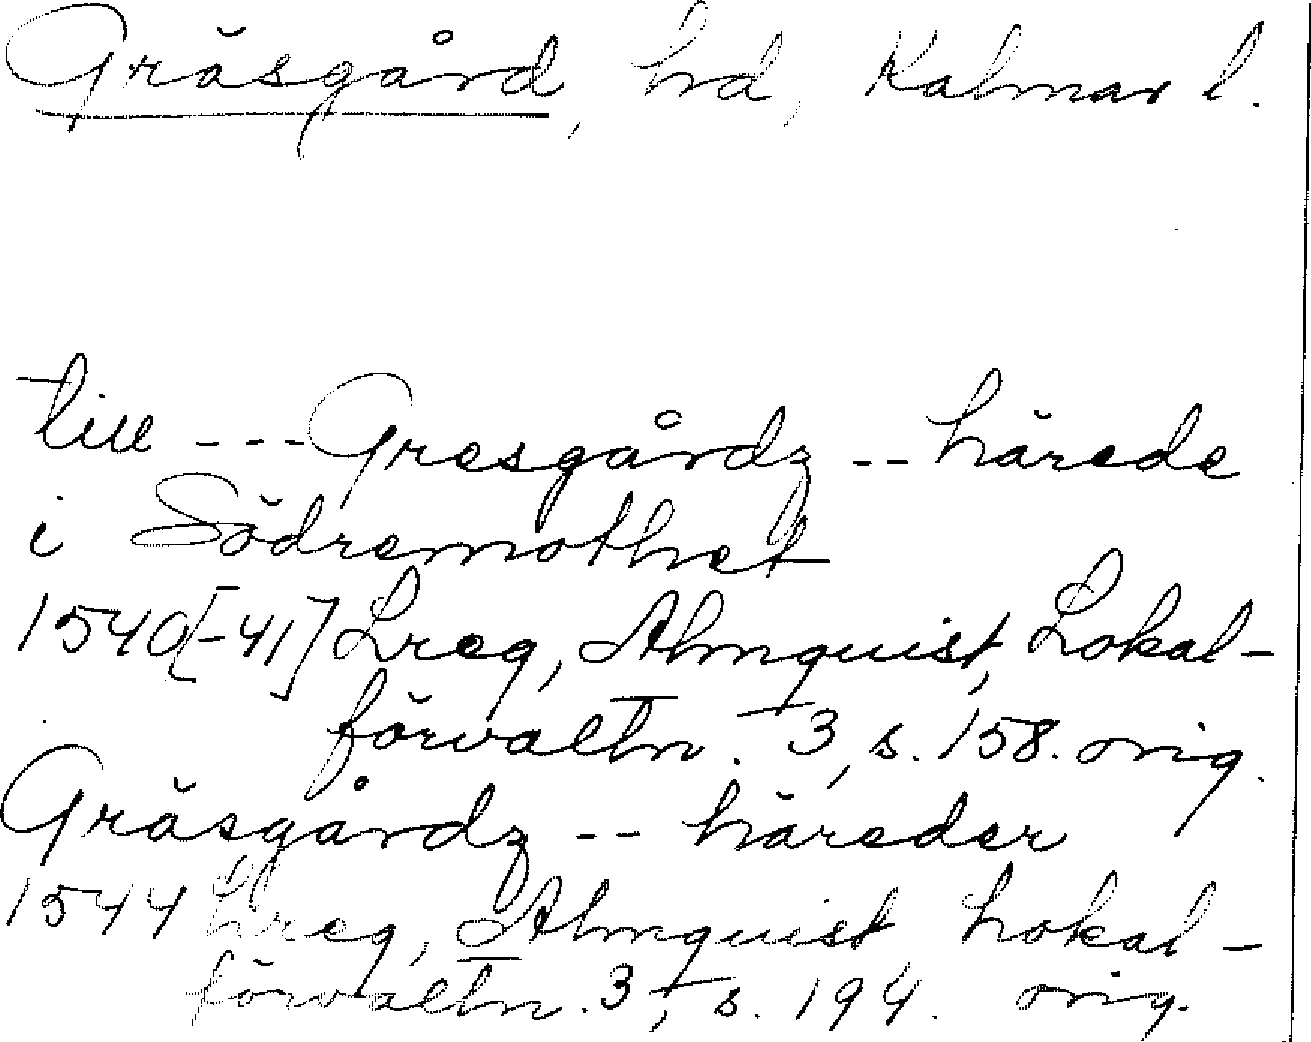 Gräsgård, hd, Kalmar l.
till --- Gresgårdz -- härede
i Södremothet
1540[-41] Lreg, Almquist, Lokal-
förvaltn. 3, s. 158. orig.
Gräsgårdz -- häreder
1544 Lreg, Almquist Lokal-
förvaltn. 3, s. 194. orig.